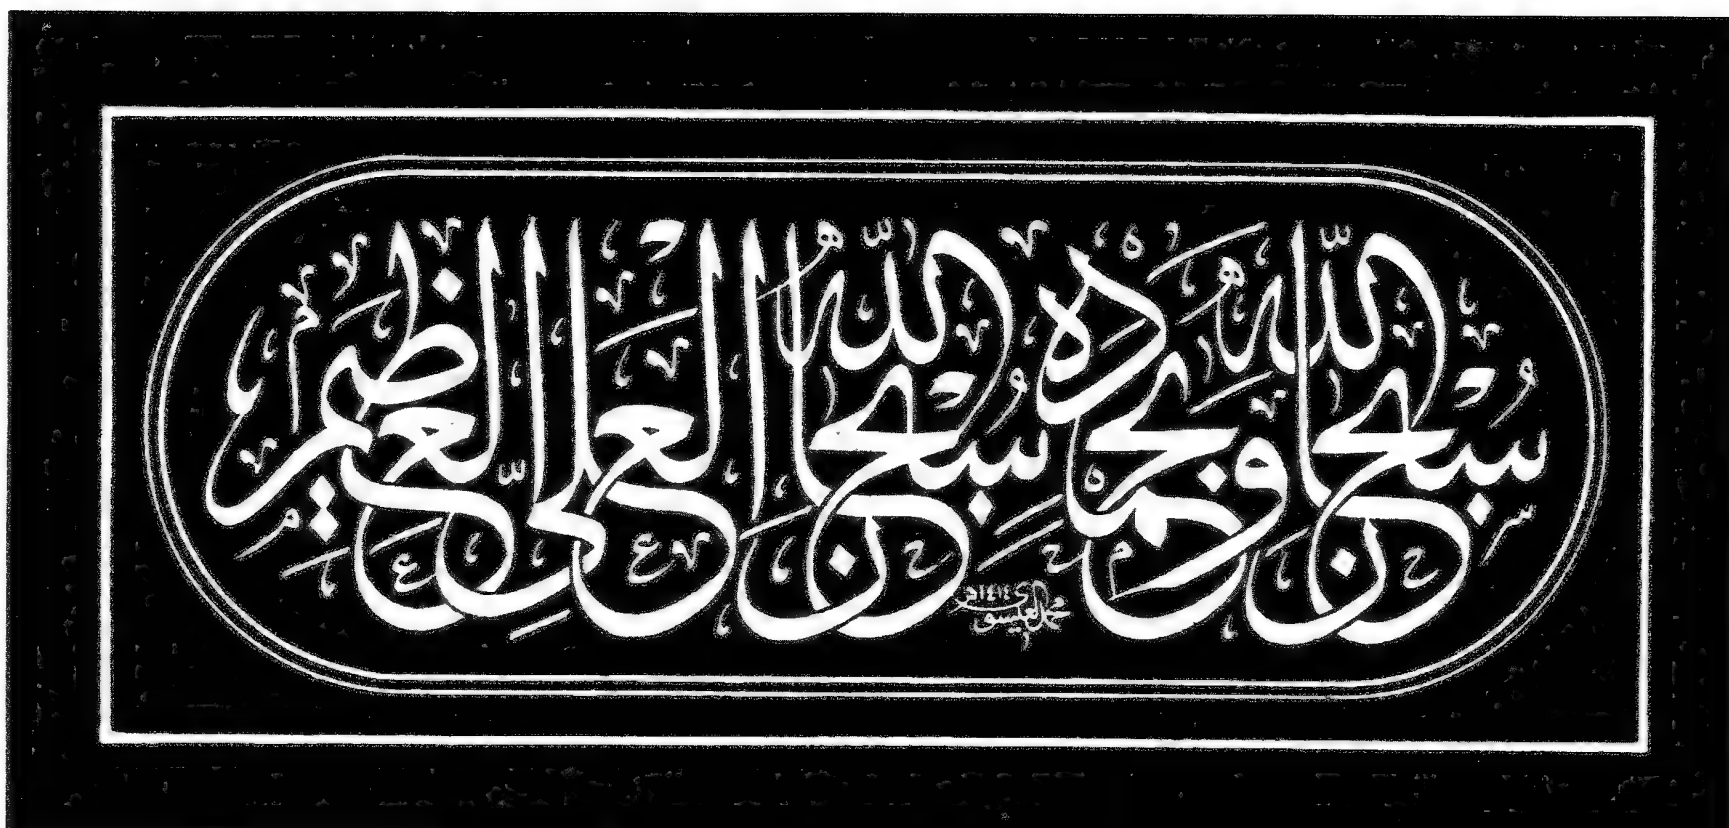 سبحان الله وبحمده سبحان الله العلي العظيم
محمد العيسوي ١٤١٤هـ